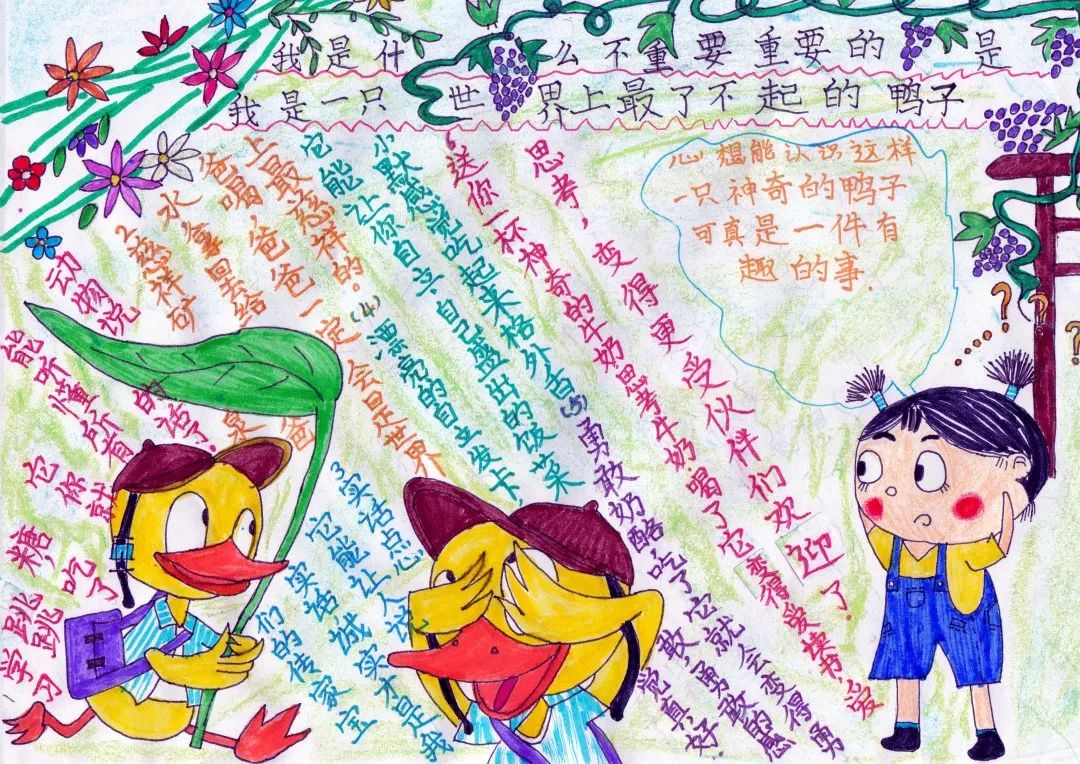 我是什么不重要重要的是
我是一只世界上最了不起的鸭子
心想能认识这样
一只神奇的鸭子
可真是一件有
趣的事.
学习跳跳糖
吃了它你就
能听懂所有
动物说的话了
2慈祥矿泉
水拿回去给爸
爸喝,爸爸一定会是世界
上最慈祥的。
3实话点心
它能让人说
实话诚实才是我
们的传家宝
(4)漂亮的自立发卡
它能让你自立自己盛出的饭菜
小默感觉吃起来格外香
(5)勇敢奶酪吃了它就会变得勇
敢,勇敢的感
觉真好.
6送你一杯神奇的牛奶思考牛奶喝了它变得爱读书爱
思考,变得更受伙伴们欢迎了.